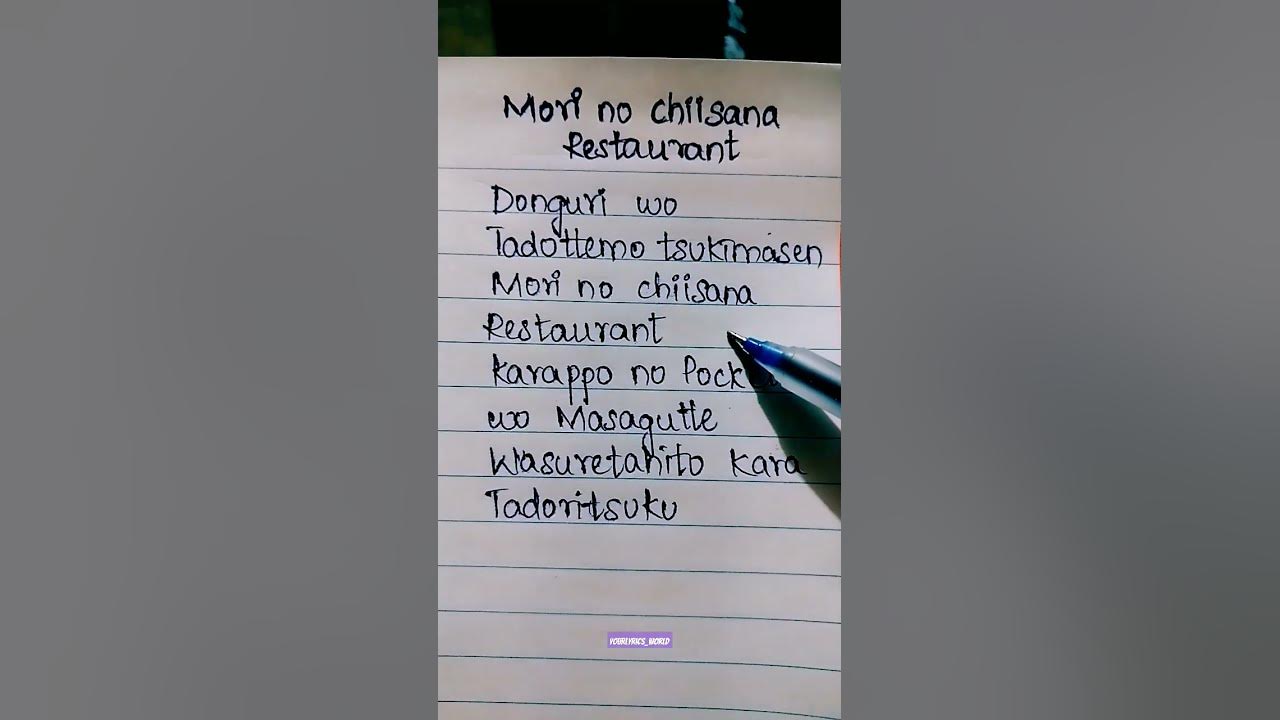 Mori no chiisana
Restaurant
Donguri wo
Tadottemo tsukimasen
Mori no chiisana
Restaurant
Karappo no
wo Masagutte
Wasuretahito kara
Tadoritsuku
YOURLYRICS_WORLD